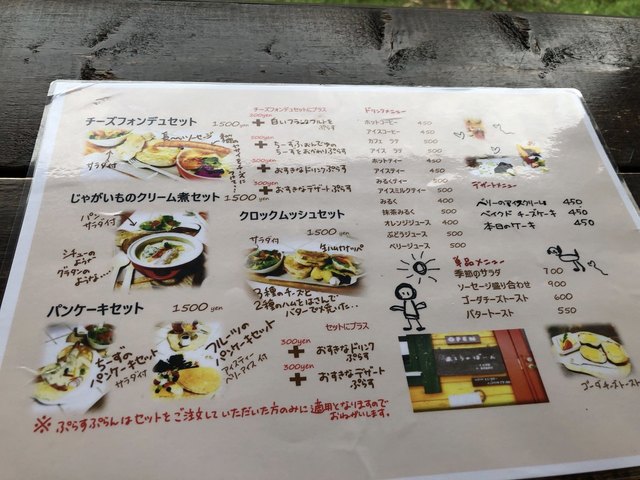 チーズフォンデュセット 1500yen
長〜いソーセージ
サラダ付
チーズフォンデュセットにプラス
300yen
+ 白いフランクフルトをぷらす
300yen
+ ちーずふぉんでゅのちーずをおかわりぷらす
300yen
+ おすきなドリンクぷらす
300yen
+ おすきなデザートぷらす
じゃがいものクリーム煮セット 1500yen
パン
サラダ付
シチューの
ような…
グラタンの
ような…
クロックムッシュセット 1500yen
サラダ付
3種のチーズと
2種のハムをはさんで
バターで焼いた…
パンケーキセット 1500yen
ちーずの
パンケーキセット
サラダ付
フルーツの
パンケーキセット
アイスティー
付
セットにプラス
300yen
+ おすきなドリンク
ぷらす
300yen
+ おすきなデザート
ぷらす
※ ぷらすぷらんはセットをご注文していただいた方のみに適用となりますので
おねがいします。
ドリンクメニュー
ホットコーヒー 450
アイスコーヒー 450
カフェ ラテ 500
アイス ラテ 500
ホットティー 450
アイスティー 450
みるくティー 500
アイスミルクティ 500
みるく 400
抹茶みるく 500
オレンジジュース 400
ぶどうジュース 500
ベリージュース 500
デザートメニュー
ベリーのアイスクリーム 450
ベイクド チーズケーキ 450
本日のケーキ 450
単品メニュー
季節のサラダ 700
ソーセージ盛り合わせ 900
ゴーダチーズトースト 600
バタートースト 550
OPEN
ゴーダチーズトースト